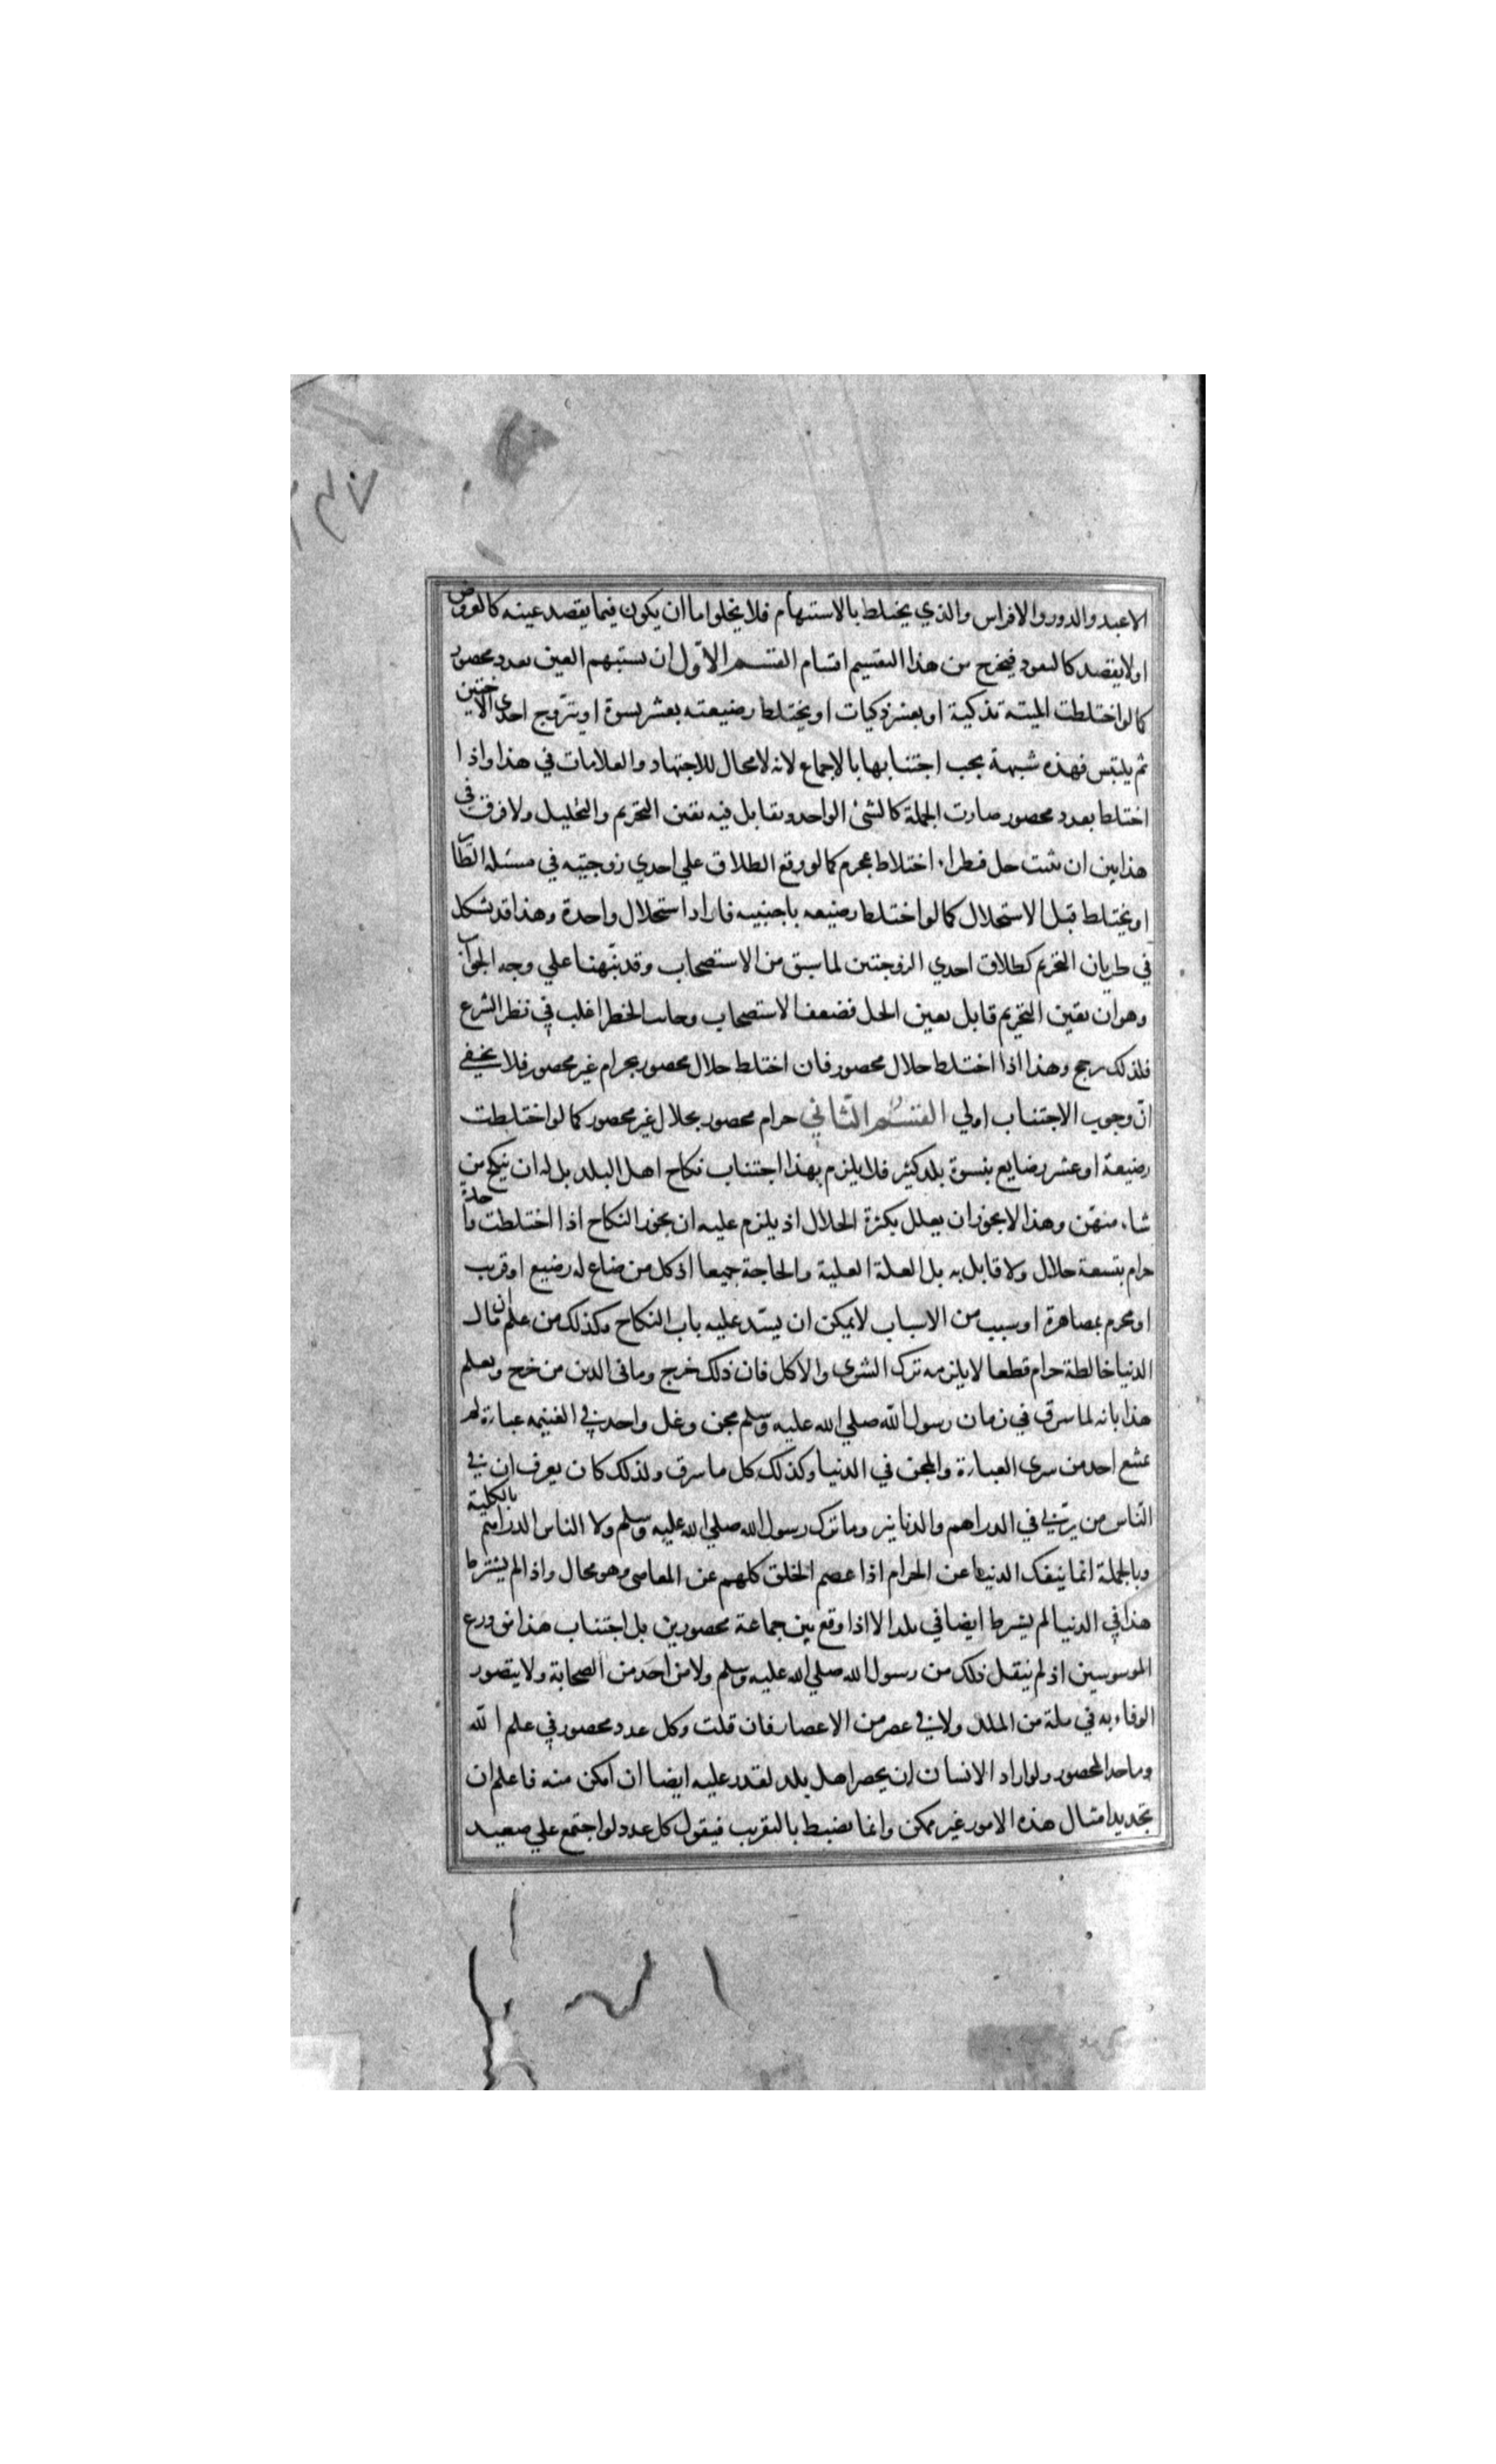 الاعبد والدور والافراس والذي يختلط بالاستبهام فلا يخلوا ما ان يكون فيما يقصد عينه كالعروض
اولا يقصد كالنقود فيخرج من هذا التقسيم اقسام القسم الاول ان يستبهم العين بعدد محصور
كما لو اختلطت الميتة بذكية او بعشر ذكيات او يختلط رضيعته بعشر نسوة او يتزوج احدى الاختين
ثم يلتبس فهذه شبهة يجب اجتنابها بالاجماع لانه لا مجال للاجتهاد والعلامات في هذا واذا
اختلط بعدد محصور صارت الجملة كالشئ الواحد وتقابل فيه يقين التحريم والتحليل ولا فرق في
هذا بين ان يثبت حل فطرا اختلاط بمحرم كما لو وقع الطلاق علي احدي زوجتيه في مسئلة الطاير
او يختلط قبل الاستحلال كما لو اختلط رضيعه باجنبيه فاراد استحلال واحدة وهذا قد يشكل
في طريان التحريم كطلاق احدي الزوجتين لما سبق من الاستصحاب وقد نبهنا علي وجه الجواب
وهو ان يقين التحريم قابل يقين الحل فضعف الاستصحاب وجانب الخطر اغلب في نظر الشرع
فلذلك رجح وهذا اذا اختلط حلال محصور فان اختلط حلال محصور بحرام غير محصور فلا يخفي
ان وجوب الاجتناب اولي القسم الثاني حرام محصور بحلال غير محصور كما لو اختلطت
رضيعة او عشر رضايع بنسوة بلد كثير فلا يلزم بهذا اجتناب نكاح اهل البلد بل له ان ينكح من
شاء منهن وهذا لا يجوز ان يعلل بكثرة الحلال اذ يلزم عليه ان يجوز النكاح اذا اختلطت واحدة
حرام بتسعة حلال ولا قايل به بل العلة الغلبة والحاجة جميعا اذ كل من ضاع له رضيع او قريب
او محرم بمصاهرة او سبب من الاسباب لا يمكن ان يسد عليه باب النكاح وكذلك من علم ان مال
الدنيا خالطة حرام قطعا لا يلزمه ترك الشرى والاكل فان ذلك حرج وما في الدين من حرج ويعلم
هذا بانه لما سرق في زمان رسول الله صلي الله عليه وسلم مجن وغل واحد في الغنيمه عباءة لم
يمتنع احد من شرى العباءة والمجن في الدنيا وكذلك كل ما سرق ولذلك كان يعرف ان في
الناس من يربي في الدراهم والدنانير وما ترك رسول الله صلي الله عليه وسلم ولا الناس الدراهم بالكلية
وبالجملة انما ينفك الدنيا عن الحرام اذا عصم الخلق كلهم عن المعاصى وهو محال واذا لم يشترط
هذا في الدنيا لم يشترط ايضا في بلد الا اذا وقع بين جماعة محصورين بل اجتناب هذا من ورع
الموسوسين اذ لم ينقل ذلك من رسول الله صلي الله عليه وسلم ولا من احد من الصحابة ولا يتصور
الوفاء به في ملة من الملل ولا في عصر من الاعصار فان قلت وكل عدد محصور في علم الله
وما حد المحصور ولو اراد الانسان ان يحصر اهل بلد لقدر عليه ايضا ان امكن منه فاعلم ان
تحديد امثال هذه الامور غير ممكن وانما يضبط بالتقريب فيقول كل عدد لو اجتمع علي صعيد